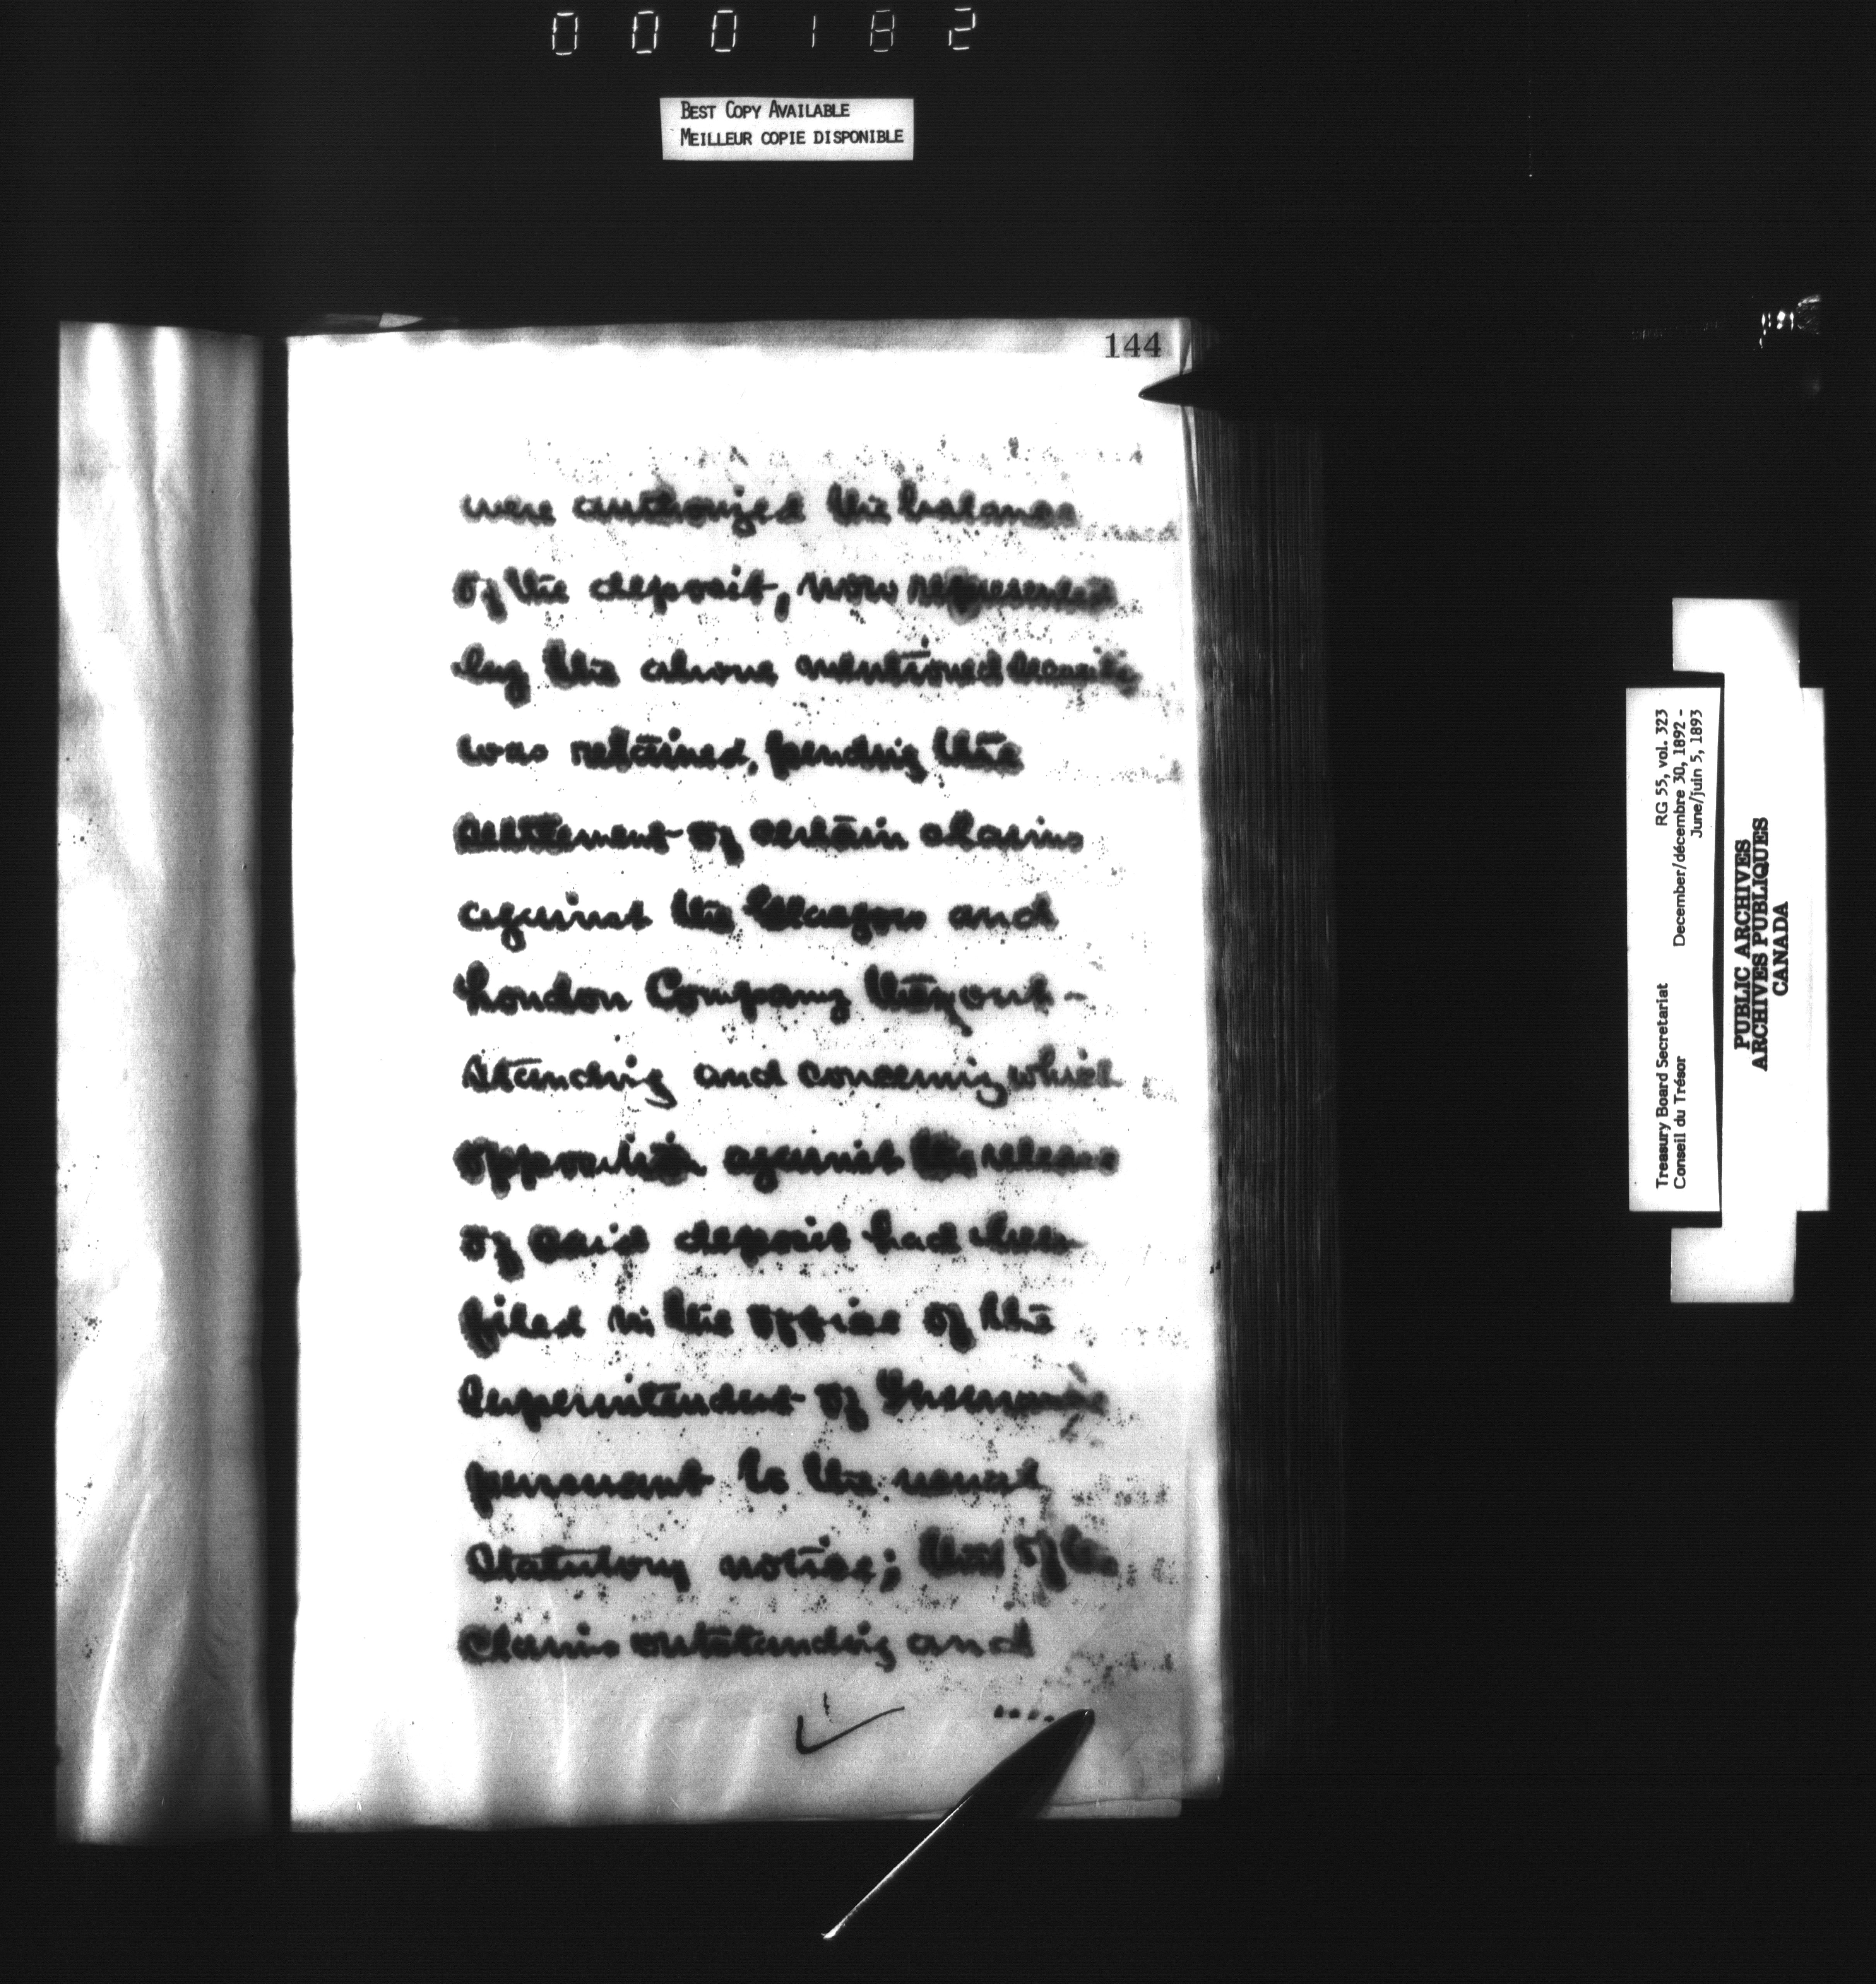 000182
BEST COPY AVAILABLE
MEILLEUR COPIE DISPONIBLE
144
were authorized the balance
of the deposit, now represented
by the above mentioned security
was retained, pending the
settlement of certain claims
against the Glasgow and
London Company then out-
standing and concerning which
opposition against the release
of said deposit had been
filed in the office of the
Superintendent of Insurance
pursuant to the usual
statutory notice; that of the
claims outstanding and
.....
Treasury Board Secretariat RG 55, vol. 323
Conseil du Trésor December/décembre 30, 1892 -
June/juin 5, 1893
PUBLIC ARCHIVES
ARCHIVES PUBLIQUES
CANADA